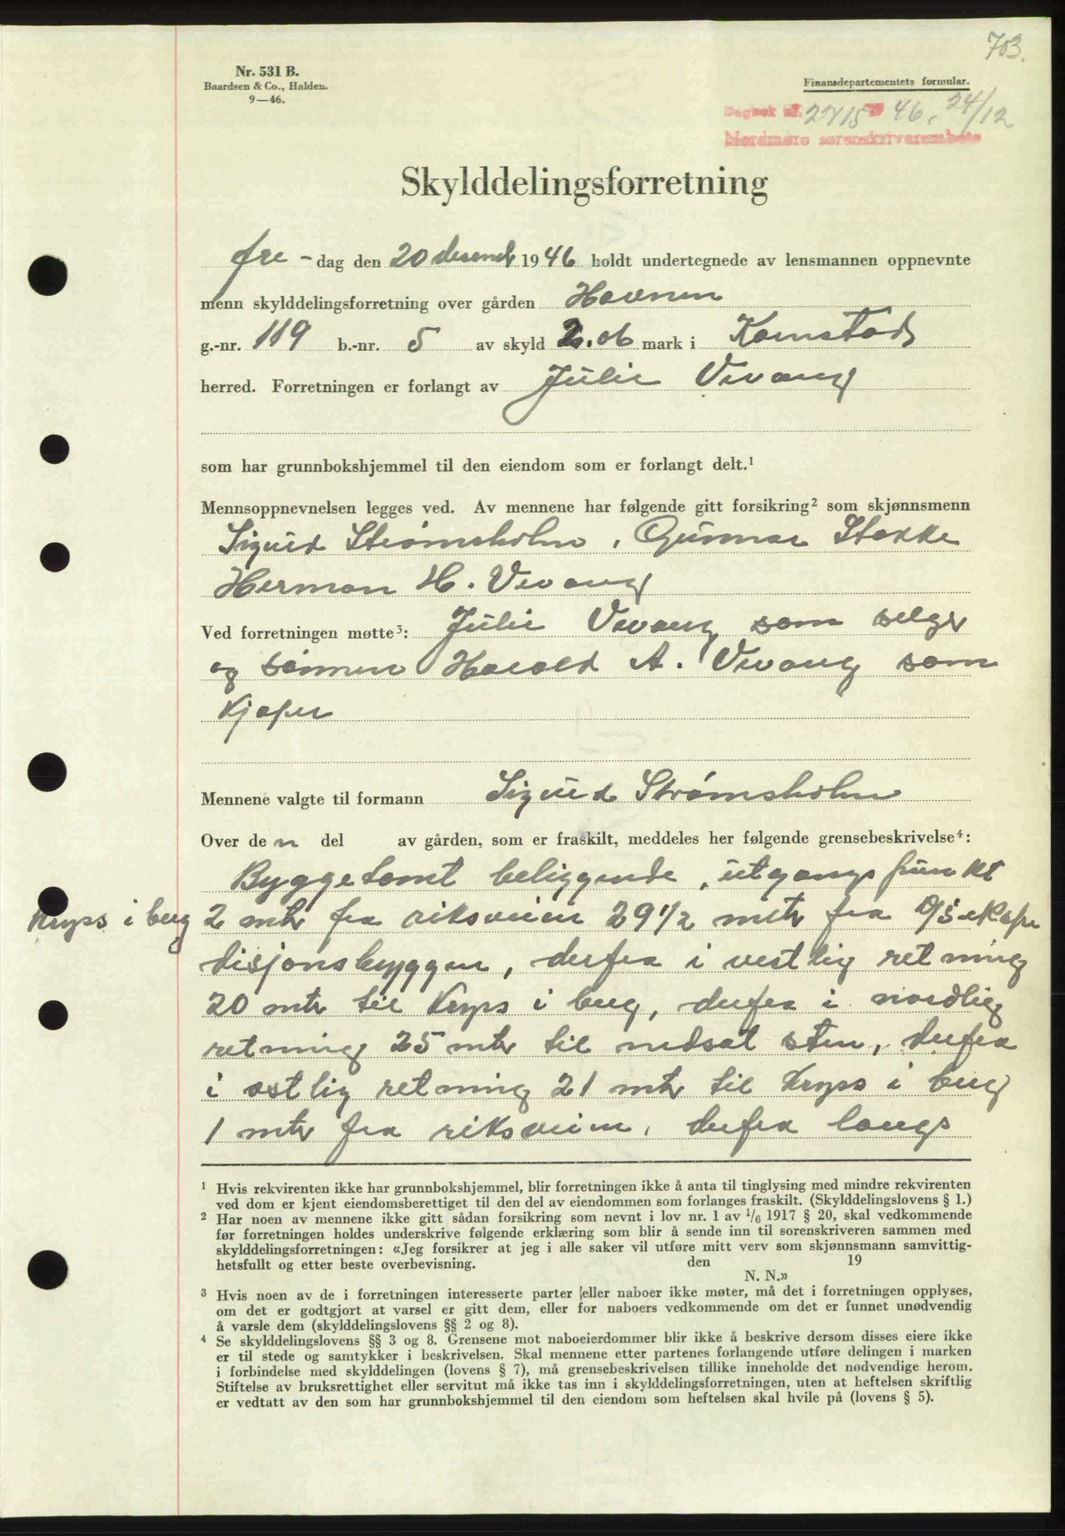 703.
Nr. 531 B.
Baardsen & Co., Halden.
9—46.
Finansdepartementets formular.
Dagbok nr. 2715 1946, 24/12
Nordmøre sorenskriverembete
Skylddelingsforretning
fre-dag den 20 desemb 1946 holdt undertegnede av lensmannen oppnevnte
menn skylddelingsforretning over gården Havnen
g.-nr. 119 b.-nr. 5 av skyld 2.06 mark i Kornstad
herred. Forretningen er forlangt av Julie Vevang
som har grunnbokshjemmel til den eiendom som er forlangt delt.¹
Mennsoppnevnelsen legges ved. Av mennene har følgende gitt forsikring² som skjønnsmenn
Sigurd Strømsholm, Gunnar Stokke
Herman H. Vevang
Ved forretningen møtte³: Julie Vevang som selger
og sønnen Harald A. Vevang som
kjøper
Mennene valgte til formann Sigurd Strømsholm
Over den del av gården, som er fraskilt, meddeles her følgende grensebeskrivelse⁴:
Byggetomt beliggende, utgangspunkt
Kryss i berg 2 mtr fra riksveien 29½ metr fra D/S ekspe
disjonsbyggen, derfra i vestlig retning
20 mtr til Kryss i berg, derfra i nordlig
retning 25 mtr til nedsat sten, derfra
i østlig retning 21 mtr til Kryss i berg
1 mtr fra riksveien, derfra langs
¹ Hvis rekvirenten ikke har grunnbokshjemmel, blir forretningen ikke å anta til tinglysing med mindre rekvirenten
ved dom er kjent eiendomsberettiget til den del av eiendommen som forlanges fraskilt. (Skylddelingslovens § 1.)
² Har noen av mennene ikke gitt sådan forsikring som nevnt i lov nr. 1 av 1/6 1917 § 20, skal vedkommende
før forretningen holdes underskrive følgende erklæring som blir å sende inn til sorenskriveren sammen med
skylddelingsforretningen: «Jeg forsikrer at jeg i alle saker vil utføre mitt verv som skjønnsmann samvittig-
hetsfullt og etter beste overbevisning. den 19
N. N.»
³ Hvis noen av de i forretningen interesserte parter eller naboer ikke møter, må det i forretningen opplyses,
om det er godtgjort at varsel er gitt dem, eller for naboers vedkommende om det er funnet unødvendig
å varsle dem (skylddelingslovens §§ 2 og 8).
⁴ Se skylddelingslovens §§ 3 og 8. Grensene mot naboeierdommer blir ikke å beskrive dersom disses eiere ikke
er til stede og samtykker i beskrivelsen. Skal mennene etter partenes forlangende utføre delingen i marken
i forbindelse med skylddelingen (lovens § 7), må grensebeskrivelsen tillike inneholde det nødvendige herom.
Stiftelse av bruksrettighet eller servitut må ikke tas inn i skylddelingsforretningen, uten at heftelsen skriftlig
er vedtatt av den som har grunnbokshjemmel til den eiendom som heftelsen skal hvile på (lovens § 5).